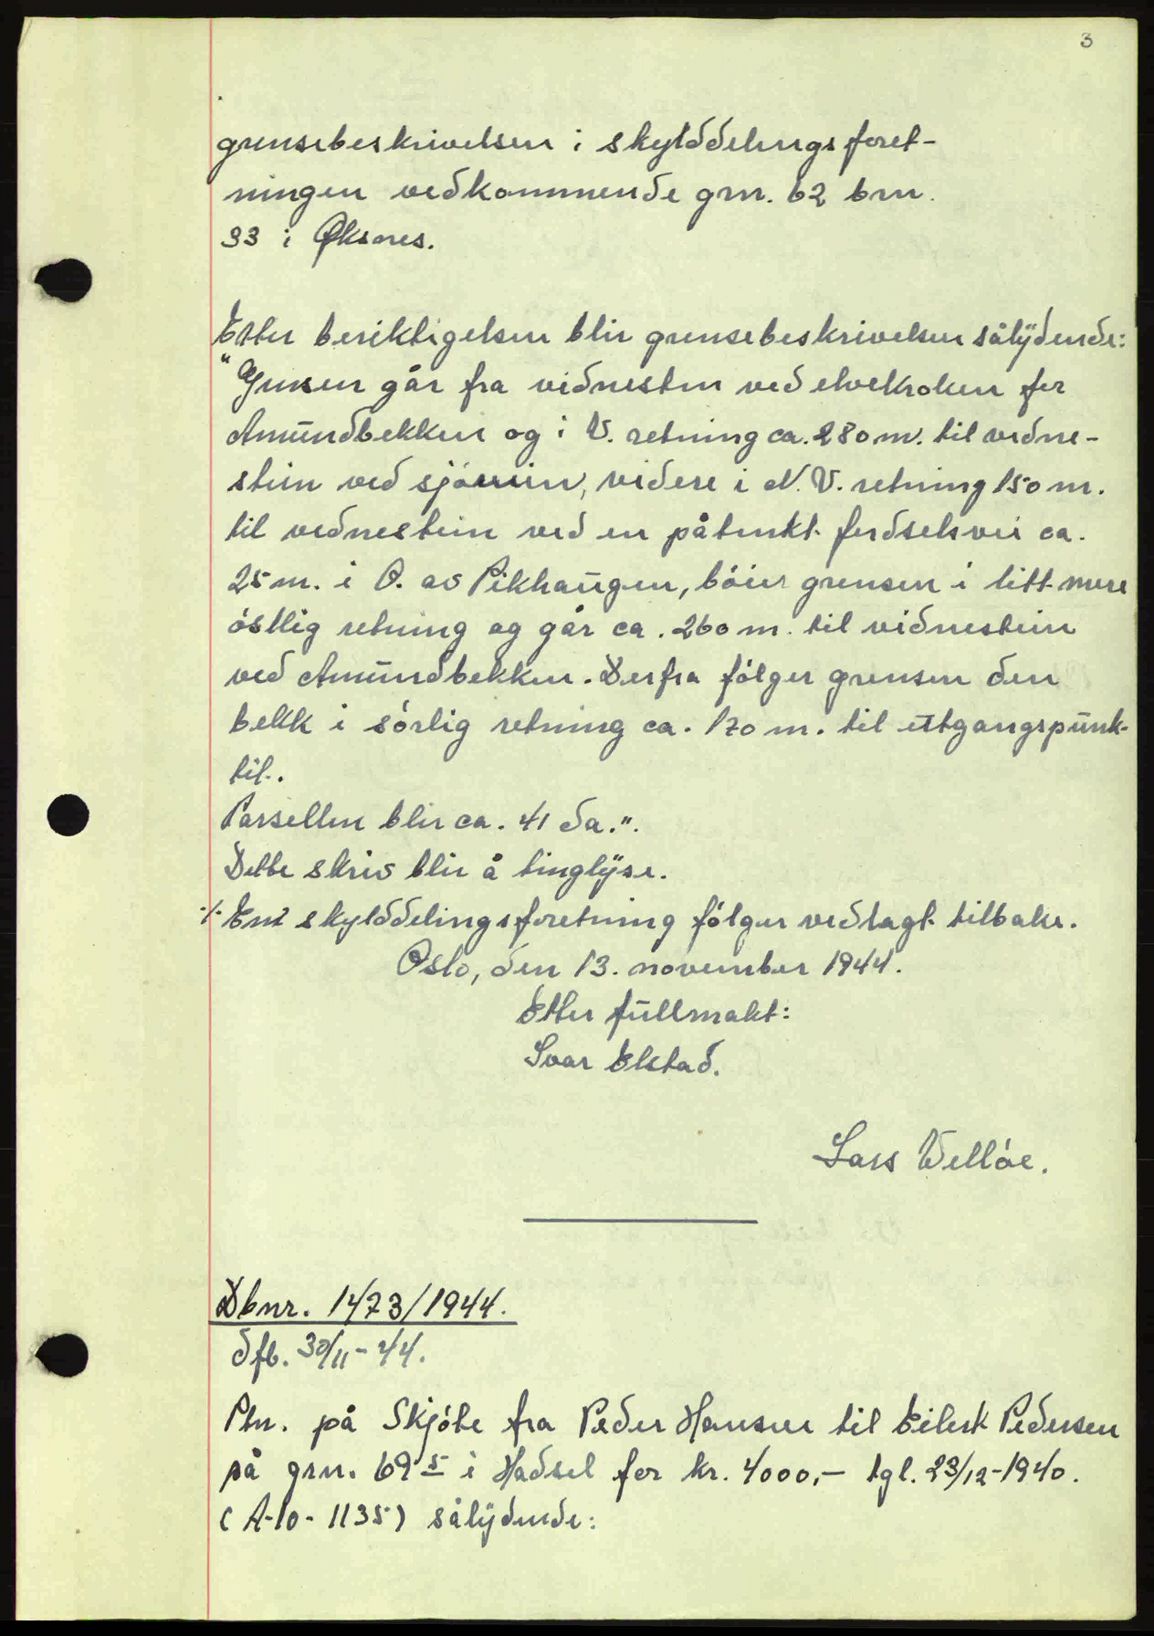 3
grensebeskrivelsen i skylddelingsforet-
ningen vedkommende grn. 62 brn.
33 i Øksnes.
Etter beriktigelsen blir grensebeskrivelsen sålydende:
"Grensen går fra vidnestein ved elvekroken for
Amundbekken og i V. retning ca. 280 m. til vidne-
stein ved sjöveien, videre i N.V. retning 150 m.
til vidnestein ved en påtenkt ferdselsvei ca.
25 m. i O. av Pikhaugen, böier grensen i litt mere
östlig retning og går ca. 260 m. til vidnestein
ved Amundbekken. Derfra fölger grensen den
bekk i sörlig retning ca. 170 m. til utgangspunk-
tet.
Parsellen blir ca. 41 da.".
Dette skriv blir å tinglyse.
./. Ent skylddelingsforetning fölger vedlagt tilbake.
Oslo, den 13. november 1944.
Etter fullmakt:
Ivar Elstad.
Lars Wellöe.
Dbnr. 1473/1944.
dfb. 30/11-44.
Ptn. på Skjöte fra Peder Hansen til Eilert Pedersen
på grn. 69 5 i Hadsel for kr. 4000,- tgl. 23/12-1940.
(A-10-1135) sålydende: